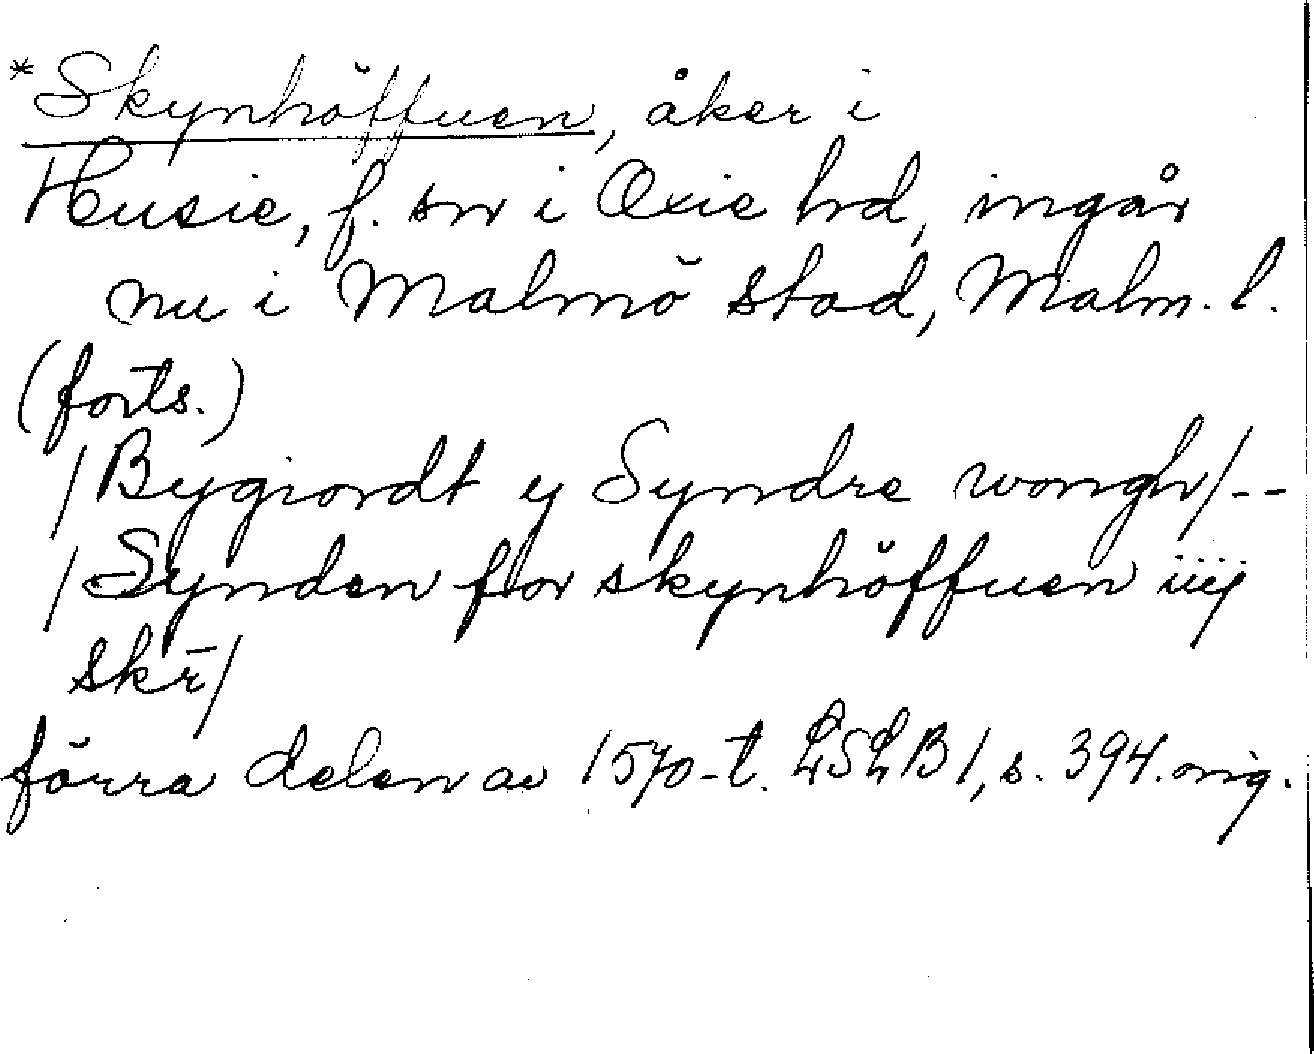 *Skynhöffuen, åker i
Husie, f. sn i Oxie hd, ingår
nu i Malmö stad, Malm. l.
(forts.)
/Bygiordt y Syndre wongh/--
/Synden for skynhöffuen iiij
skr̄/
förra delen av 1570-t. LSLB1, s. 394. orig.